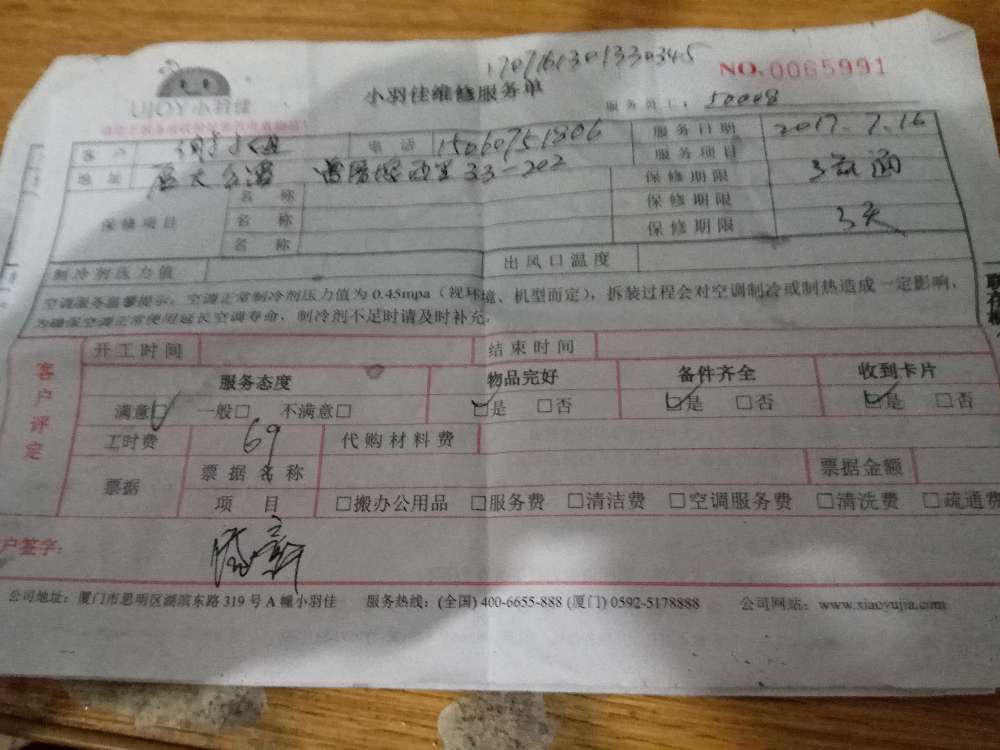 1707161301330345
NO.0065991
UJOY小羽佳
小羽佳维修服务单
服务员工：50008
客户 电话 15060751306 服务日期 2017.7.16
地址 33-202 服务项目
保修项目 名称 保修期限
名称 保修期限
名称 保修期限 3天
制冷剂压力值 出风口温度
空调服务温馨提示：空调正常制冷剂压力值为0.45mpa（视环境、机型而定），拆装过程会对空调制冷或制热造成一定影响，
为确保空调正常使用延长空调寿命，制冷剂不足时请及时补充。
客户评定
开工时间 结束时间
服务态度 物品完好 备件齐全 收到卡片
满意□ 一般□ 不满意□ □是 □否 □是 □否 □是 □否
工时费 69 代购材料费
票据 票据名称 票据金额
项目 □搬办公用品 □服务费 □清洁费 □空调服务费 □清洗费 □疏通费
户签字：
公司地址：厦门市思明区湖滨东路319号A幢小羽佳 服务热线：(全国) 400-6655-888 (厦门) 0592-5178888 公司网站：www.xiaoyujia.com